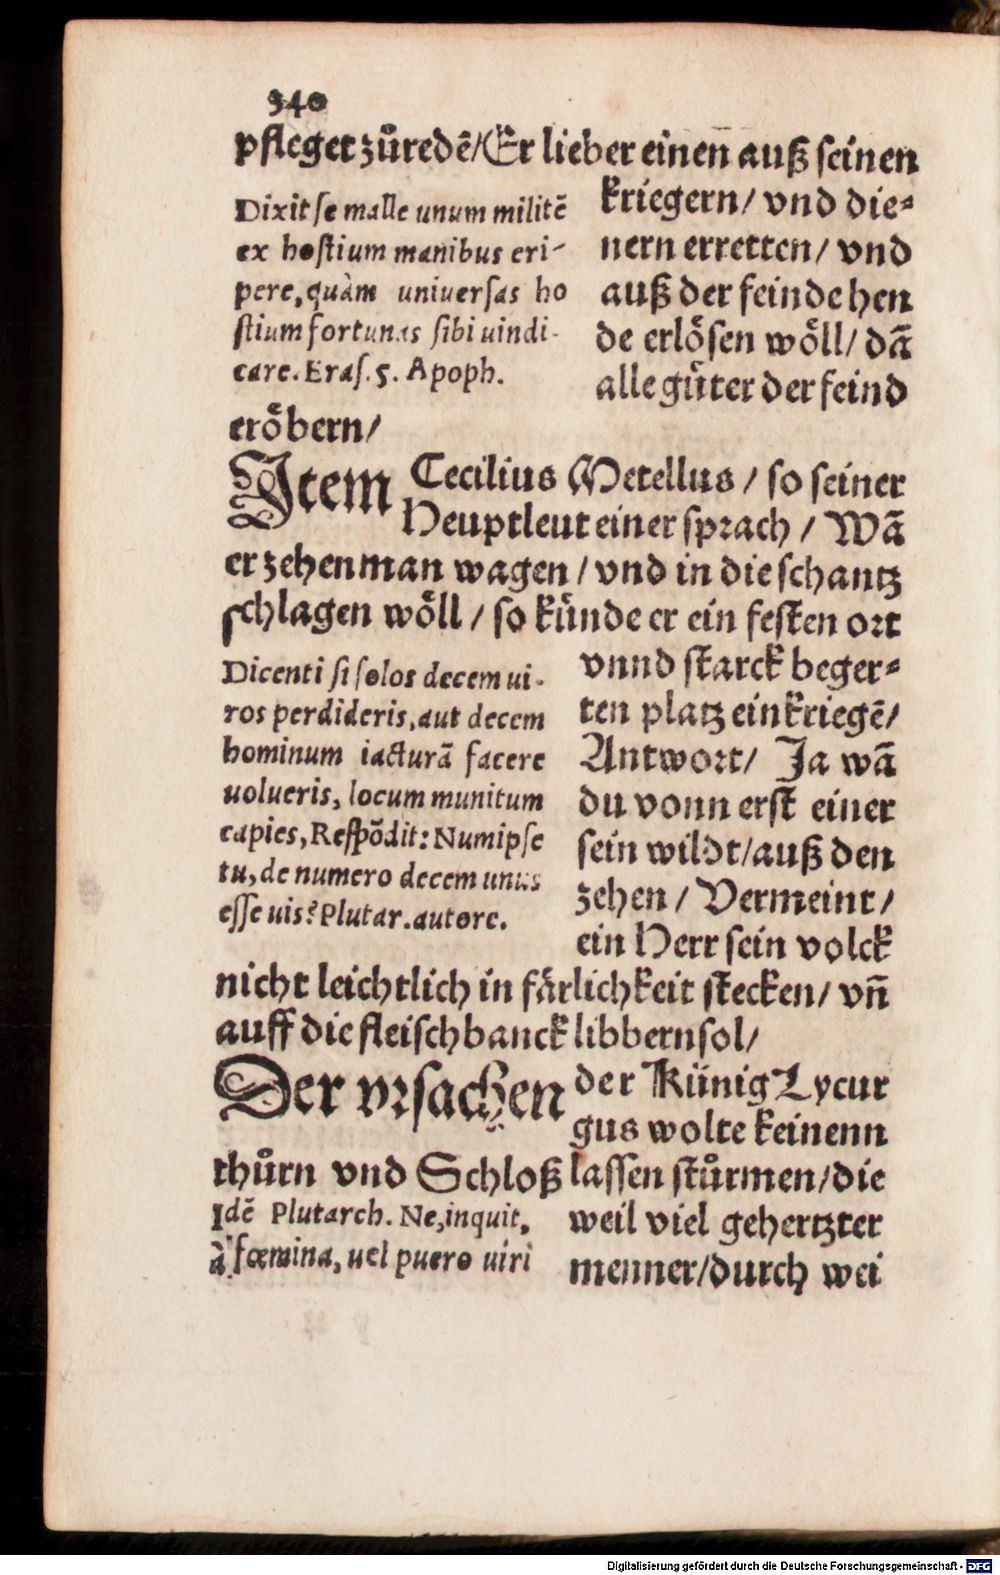 340
pfleget zůredē/Er lieber einen auß seinen
kriegern/ vnd die⸗
nern erretten/ vnd
auß der feinde hen
de erlösen wöll/ dā
alle güter der feind
Dixit se malle unum militē
ex hostium manibus eri-
pere, quàm uniuersas ho
stium fortunas sibi uindi-
care. Eras. 5. Apoph.
eröbern/
Item Cecilius Metellus / so seiner
Heuptleut einer sprach / Wā
er zehen man wagen / vnd in die schantz
schlagen wöll / so künde er ein festen ort
vnnd starck beger⸗
ten platz einkriegē/
Antwort/ Ja wā
du vonn erst einer
sein wildt/auß den
zehen / Vermeint /
ein Herr sein volck
Dicenti si solos decem ui-
ros perdideris, aut decem
hominum iacturā facere
uolueris, locum munitum
capies, Respōdit: Num ipse
tu, de numero decem unus
esse uis? Plutar. autore.
nicht leichtlich in färlichkeit stecken/ vn̄
auff die fleischbanck libbern sol/
Der vrsachen der Künig Lycur
gus wolte keinenn
thůrn vnd Schloß lassen stůrmen/die
weil viel gehertzter
menner/durch wei
Idē Plutarch. Ne, inquit,
à fœmina, uel puero uiri
Digitalisierung gefördert durch die Deutsche Forschungsgemeinschaft - DFG